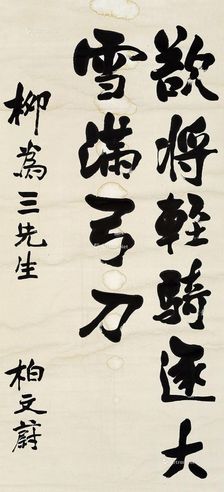 欲將輕騎逐大
雪滿弓刀
柳為三先生
柏文蔚